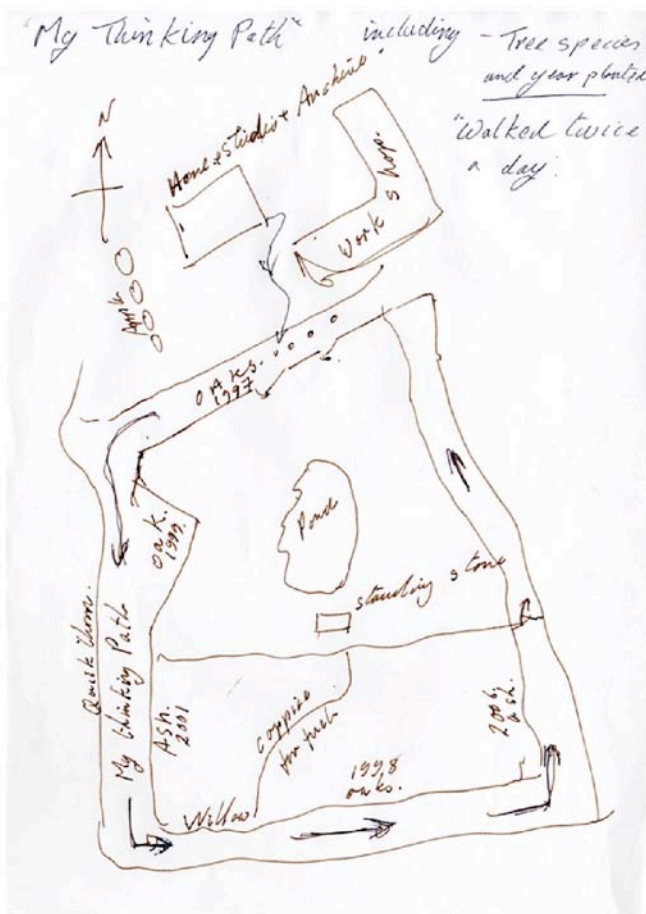 "My Thinking Path"
including - Tree species
and year planted
"Walked twice
a day."
N
Home + Studio + Archive
Work Shop.
Apple
OAKS.
1997
oak.
1999.
Pond
standing stone
Quick thorn.
My thinking Path
Ash.
2001
coppice
for fuel
2006
ash.
1998
oaks.
Willow